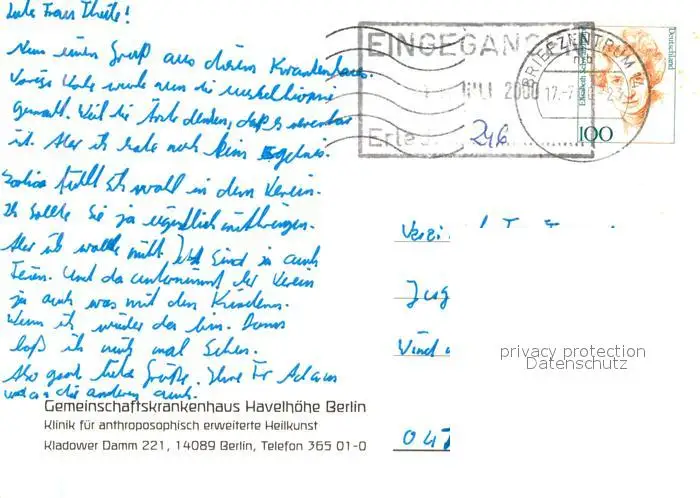 Liebe Frau Theile!
Nun einen Gruß aus diesem Krankenhaus.
Vorige Woche wurde nun die
gemacht. Weil die Ärzte denken, daß es
ist. Aber ich habe noch kein Ergebnis.
fühlt sich wohl in dem Verein.
Ich sollte Sie ja eigentlich mitbringen.
Aber ich wollte nicht. Jetzt sind ja auch
Ferien. Und da unternimmt der Verein
ja auch was mit den Kindern.
Wenn ich wieder da bin. Dann
laß ich mich mal sehen.
Also ganz liebe Grüße. Ihre Fr Adam
und an die anderen auch.
Gemeinschaftskrankenhaus Havelhöhe Berlin
Klinik für anthroposophisch erweiterte Heilkunst
Kladower Damm 221, 14089 Berlin, Telefon 365 01-0
EINGEGANG
JULI 2000
Erled
BRIEFZENTRUM 14
mb
17.-7.
Deutschland
100
Verei
Jug
Vind
047
privacy protection
Datenschutz